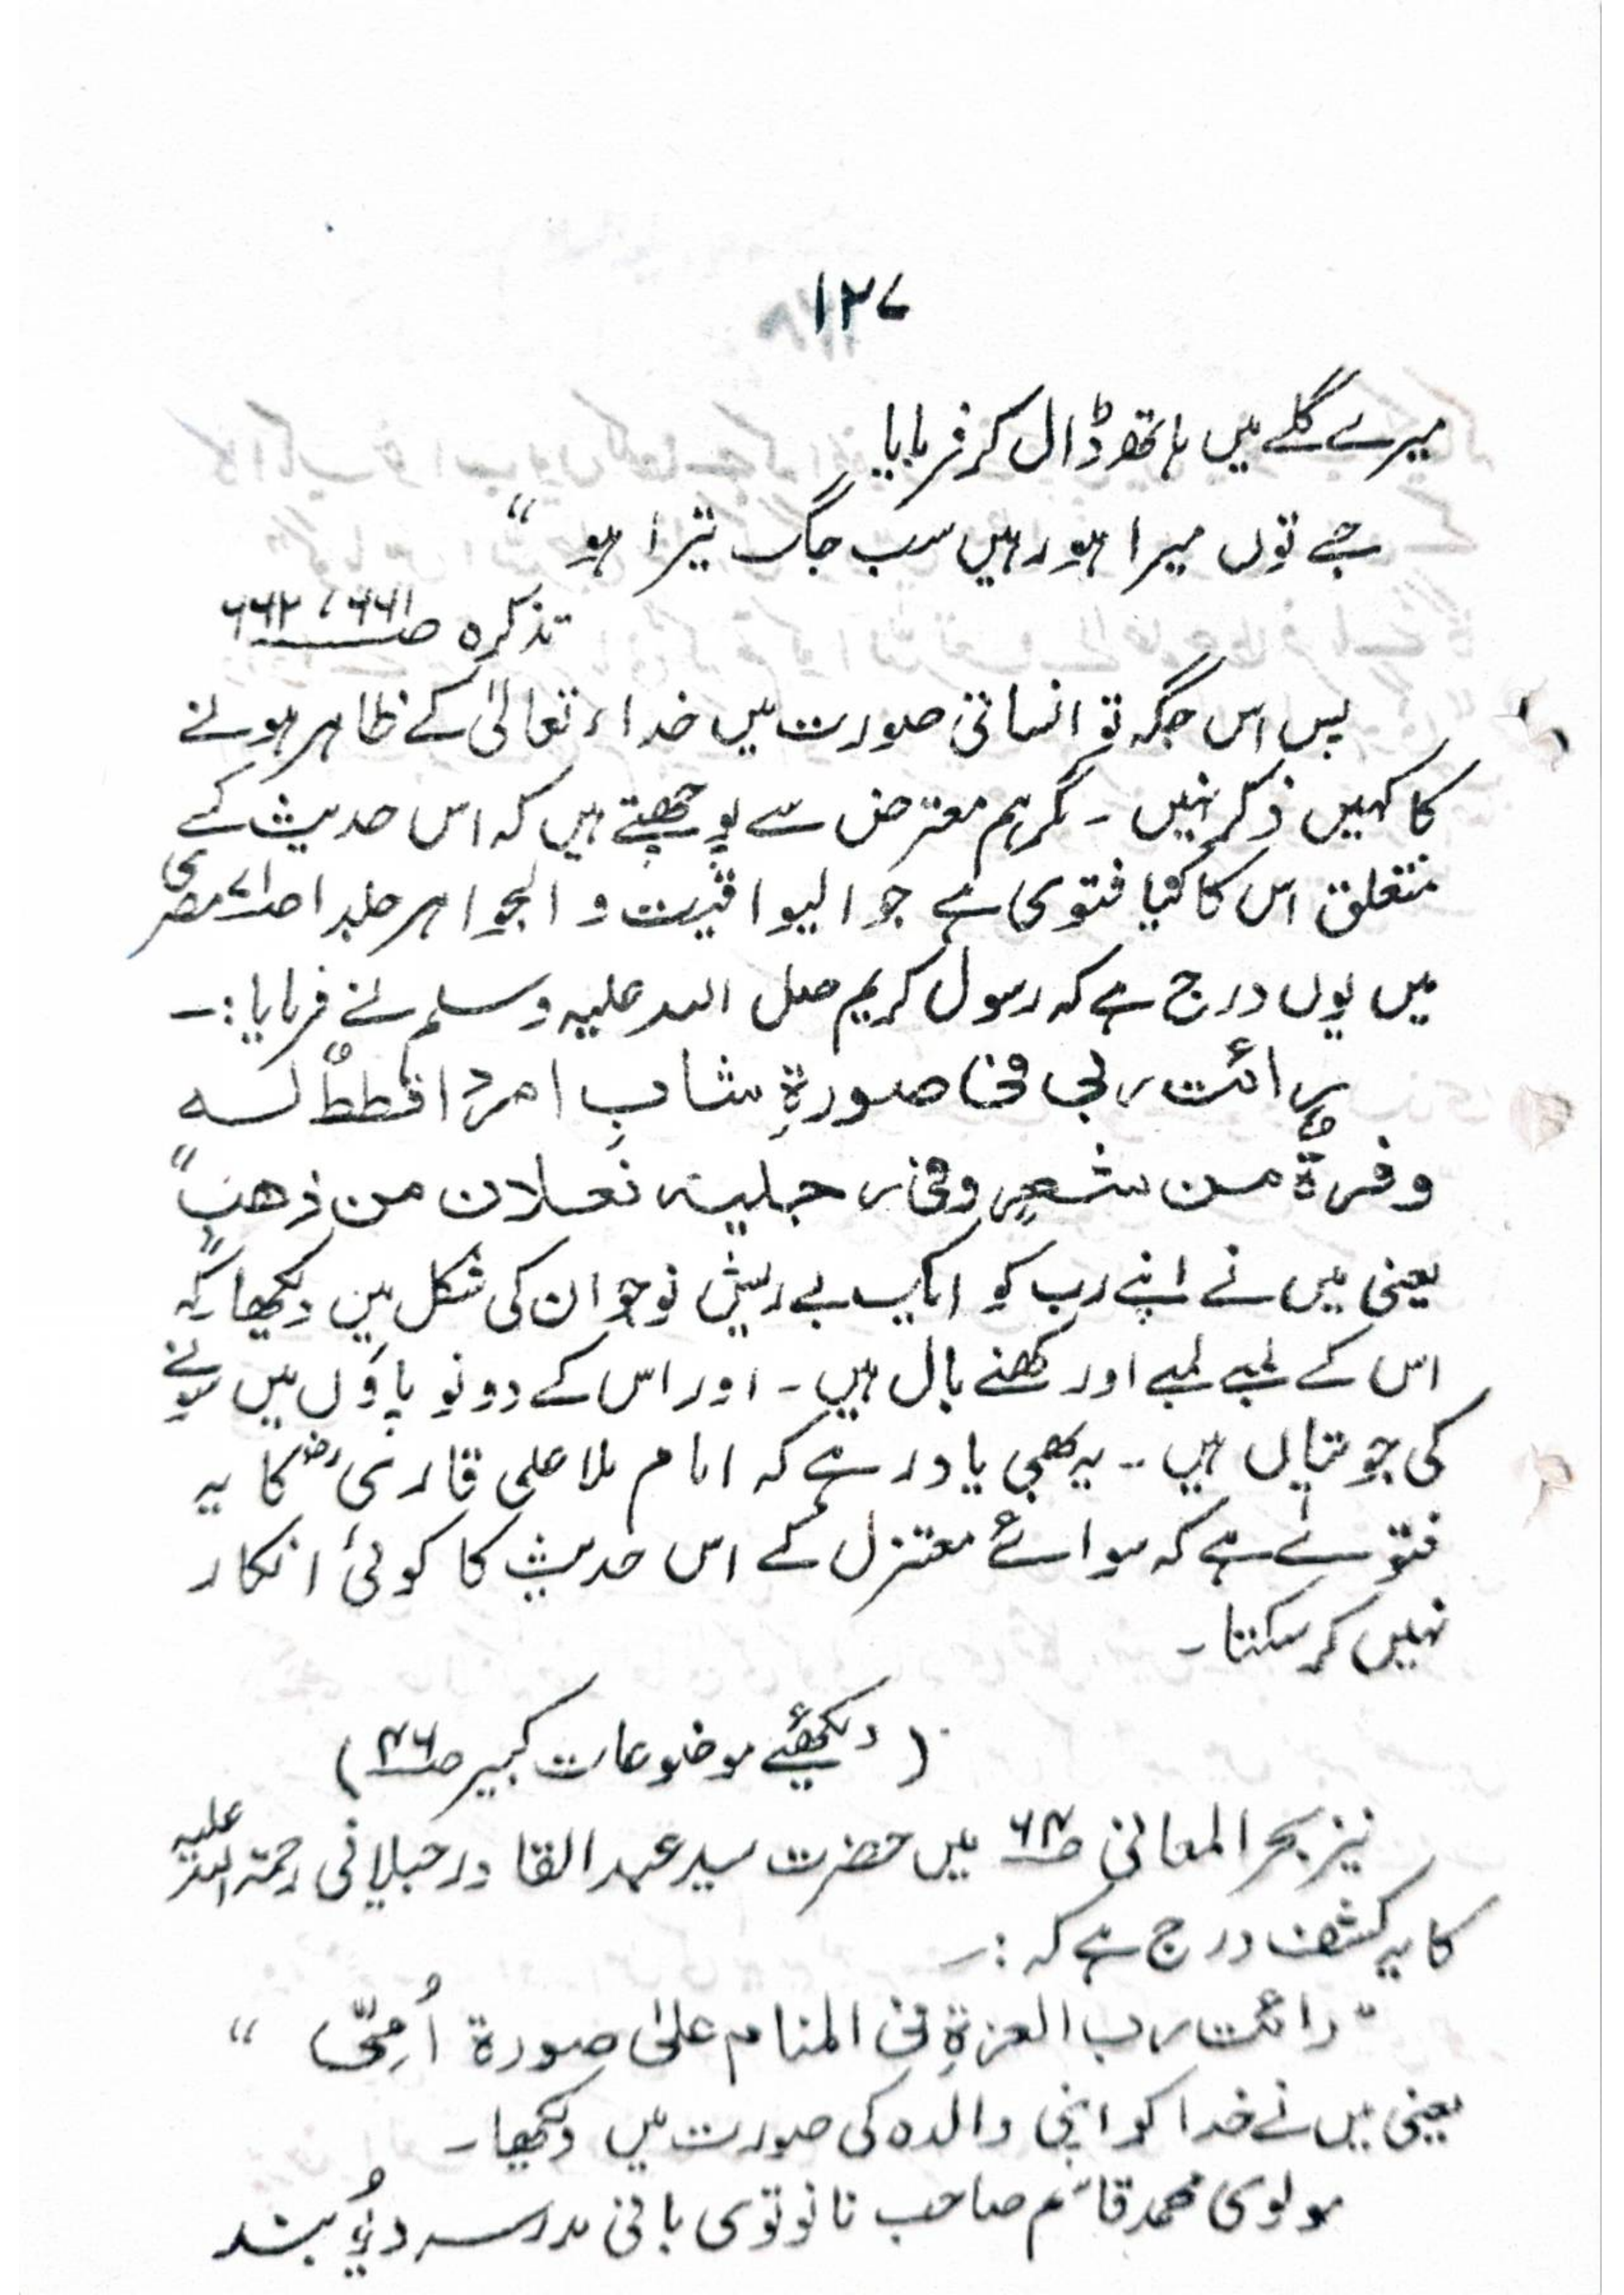 ۱۲۷
میرے گلے میں ہاتھ ڈال کر فرمایا
جے توں میرا ہو رہیں سب جگ تیرا ہو "
تذکرہ صـ ۶۶۱، ۶۶۲
پس اس جگہ تو انسانی صورت میں خداء تعالیٰ کے ظاہر ہونے
کا کہیں ذکر نہیں ۔ مگر ہم معترض سے پوچھتے ہیں کہ اس حدیث کے
متعلق اس کا کیا فتوی ہے جو الیواقیت و الجواہر جلد ا صـ۷۱ مصری
میں یوں درج ہے کہ رسول کریم صلی اللہ علیہ وسلم نے فرمایا :۔
رائت ربی فی صورۃِ شابِ امردٌ اقططٌ لسہ
وفرۃٌ من شعرٍ وفی رجلیہ نعلان من ذھب "
یعنی میں نے اپنے رب کو ایک بے ریش نوجوان کی شکل میں دیکھا کہ
اس کے لمبے لمبے اور گھنے بال ہیں ۔ اور اس کے دونو پاؤں میں سونے
کی جوتیاں ہیں ۔ یہ بھی یاد رہے کہ امام ملا علی قاری رض کا یہ
فتوے ہے کہ سوائے معتزل کے اس حدیث کا کوئی انکار
نہیں کر سکتا ۔
( دیکھئیے موضوعات کبیر صـ ۴۶ )
نیز بحر المعانی صـ ۶۴ میں حضرت سید عبد القادر جیلانی رحمۃ اللہ علیہ
کا یہ کشف درج ہے کہ :۔
" رائت رب العزۃِ فی المنام علیٰ صورۃ اُمِّی "
یعنی میں نے خدا کو اپنی والدہ کی صورت میں دیکھا ۔
مولوی محمد قاسم صاحب نانوتوی بانی مدرسہ دیُوبند